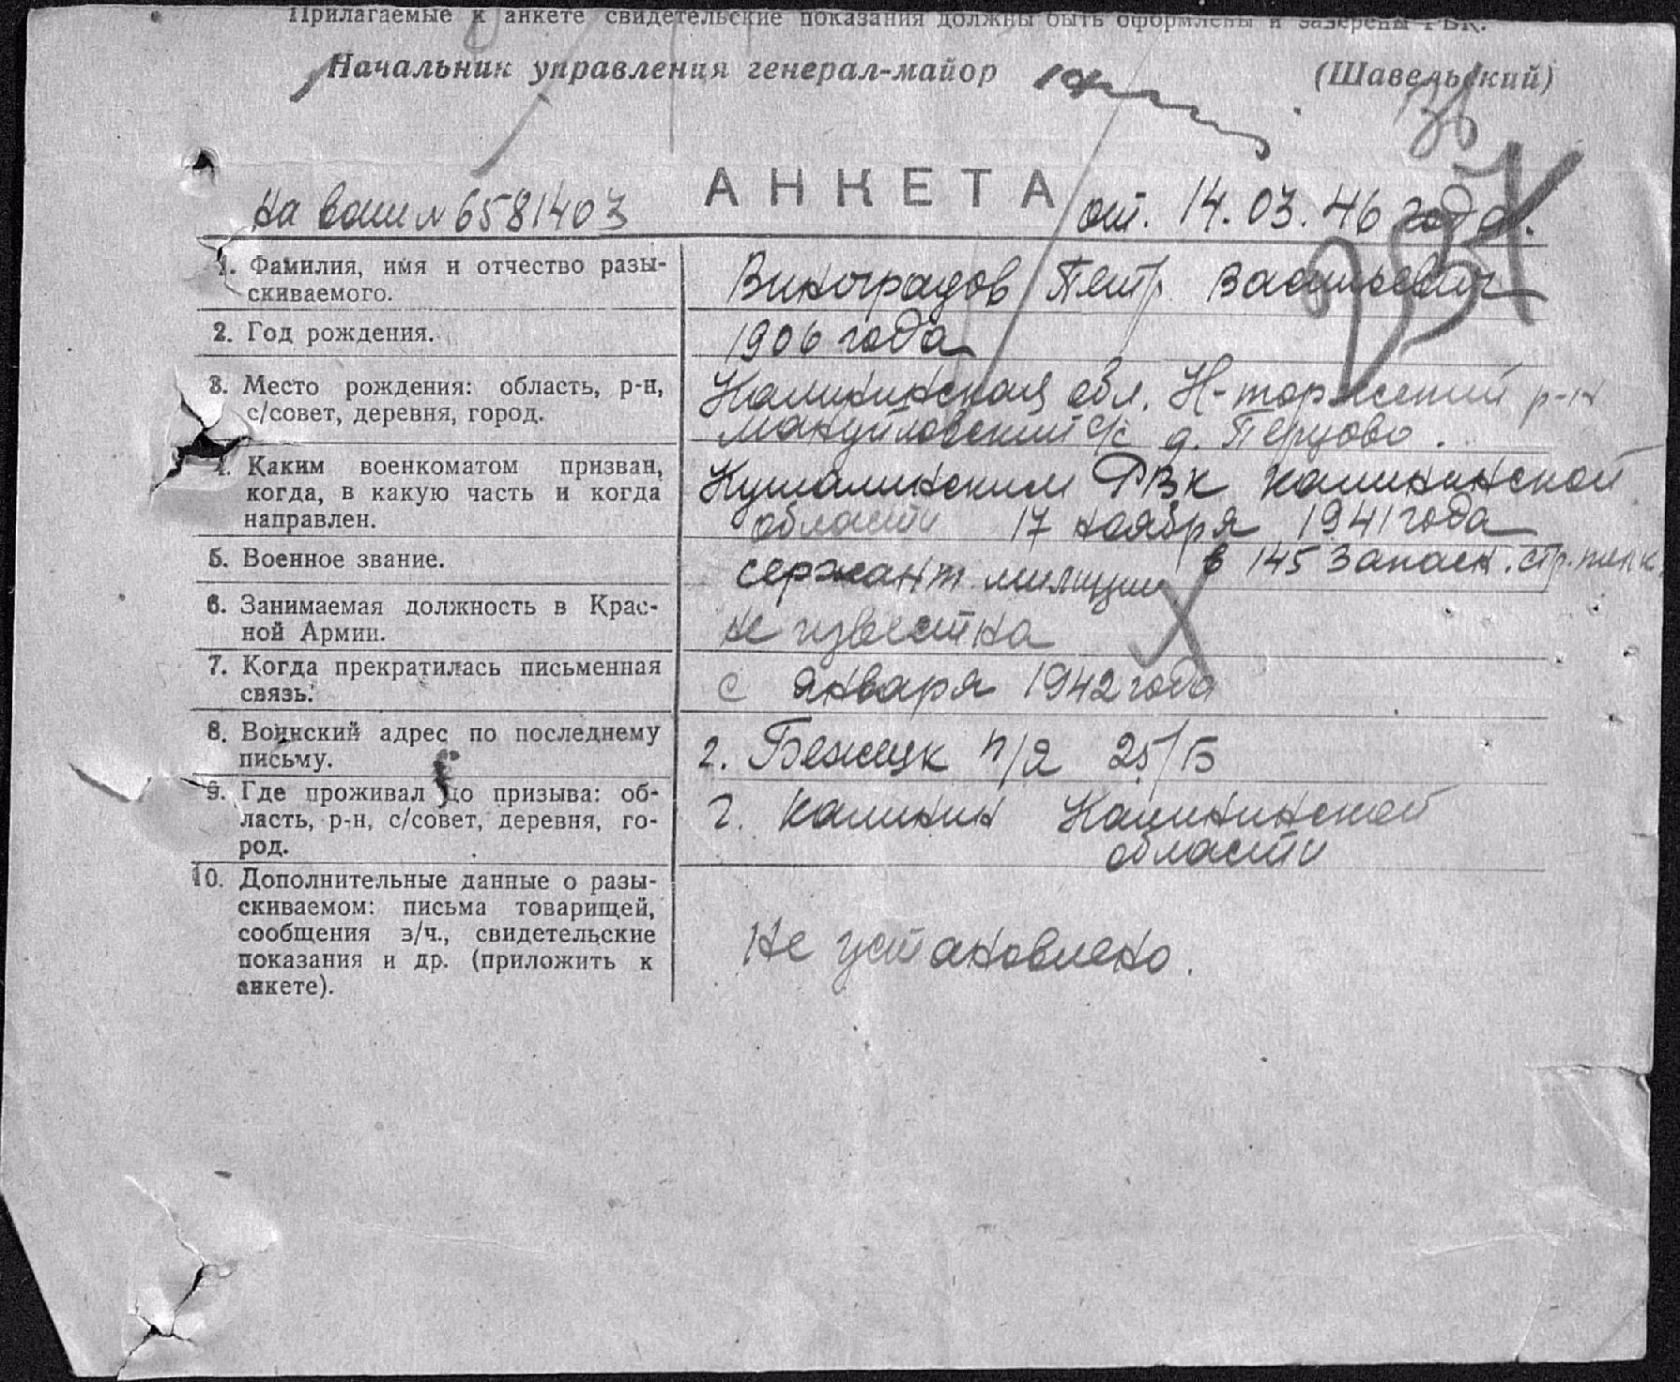 Прилагаемые к анкете свидетельские показания должны быть оформлены и заверены РВК.
Начальник управления генерал-майор (Шавельский)
АНКЕТА
на ваш № 6581403 от. 14.03.46 года.
1. Фамилия, имя и отчество разы-
скиваемого.
Виноградов Петр Васильевич
2. Год рождения.
1906 года
3. Место рождения: область, р-н,
с/совет, деревня, город.
Калининская обл. Н-торжский р-н
Мануйловский с/с д. Перцово.
4. Каким военкоматом призван,
когда, в какую часть и когда
направлен.
Кушалинским РВК Калининской
области 17 ноября 1941 года
в 145 запасн. стр. полк
5. Военное звание.
сержант милиции
6. Занимаемая должность в Крас-
ной Армии.
не известна
7. Когда прекратилась письменная
связь.
с января 1942 года
8. Воинский адрес по последнему
письму.
г. Бежецк п/я 25/Б
9. Где проживал до призыва: об-
ласть, р-н, с/совет, деревня, го-
род.
г. Калинин Калининской
области
10. Дополнительные данные о разы-
скиваемом: письма товарищей,
сообщения з/ч., свидетельские
показания и др. (приложить к
анкете).
Не установлено.